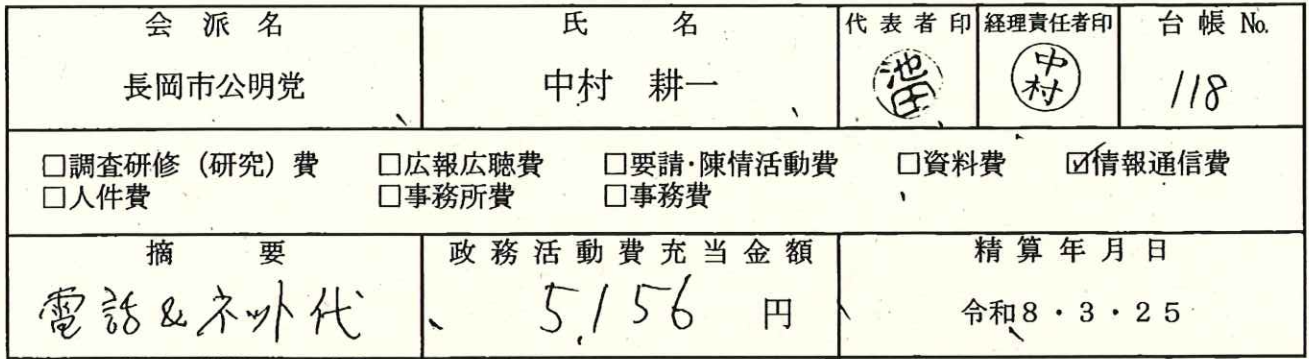 会派名 氏名 代表者印 経理責任者印 台帳No.
長岡市公明党 中村 耕一 池田 中村 118
□調査研修(研究)費 □広報広聴費 □要請・陳情活動費 □資料費 ☑情報通信費
□人件費 □事務所費 □事務費
摘要 政務活動費充当金額 精算年月日
電話&ネット代 5,156 円 令和8・3・25